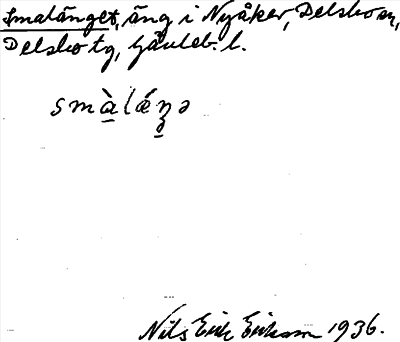 Smalänget, äng i Nyåker, Delsbo sn,
Delsbo tg, Gävleb. l.
smàlǽŋə
Nils Erik Eriksson 1936.